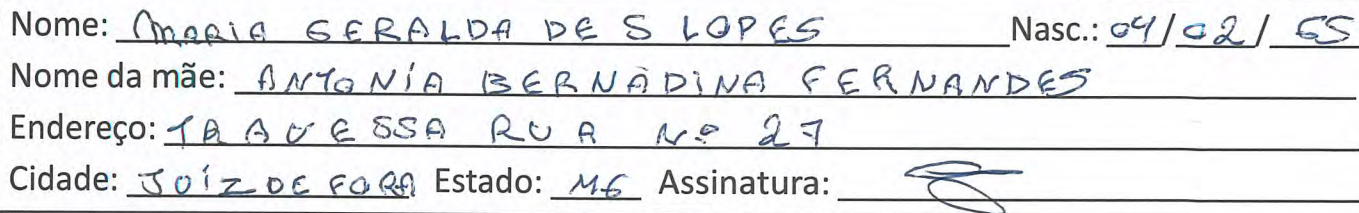 Nome: MARIA GERALDA DE S LOPES Nasc.: 04/02/65
Nome da mãe: ANTONÍA BERNADINA FERNANDES
Endereço: TRAVESSA RUA Nº 27
Cidade: JOÍZ DE FORA Estado: MG Assinatura: